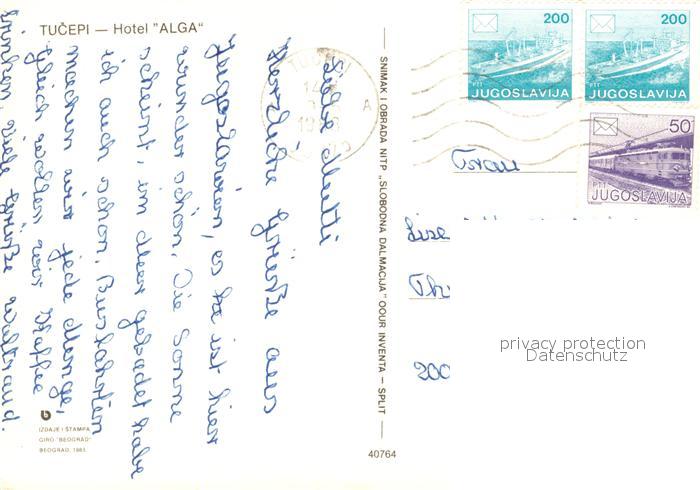 TUČEPI — Hotel "ALGA"
Liebe Mutti
Herzliche Grüße aus
Jugoslawien, es ist hier
wunderschön, Die Sonne
scheint, im Meer gebadet habe
ich auch schon, Busfahrten
machen wir jede Menge,
gleich wollen wir Kaffee
trinken, Viele Grüße Waltraud.
IZDAJE I ŠTAMPA
GIRO "BEOGRAD"
BEOGRAD, 1983.
SNIMAK I OBRADA NITP „SLOBODNA DALMACIJA" OOUR INVENTA — SPLIT —
40764
200
PTT
JUGOSLAVIJA
200
PTT
JUGOSLAVIJA
50
PTT
JUGOSLAVIJA
A
Frau
200
privacy protection
Datenschutz